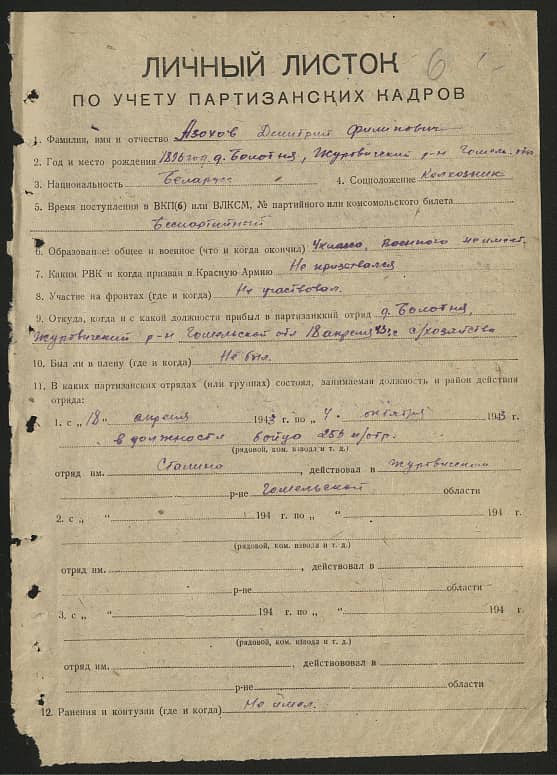 6
ЛИЧНЫЙ ЛИСТОК
ПО УЧЕТУ ПАРТИЗАНСКИХ КАДРОВ
1. Фамилия, имя и отчество Азохов Дмитрий Филипович
2. Год и место рождения 1896 год д. Болотня, Журтвичский р-н Гомель. обл
3. Национальность Беларусс 4. Соцположение Колхозник
5. Время поступления в ВКП(б) или ВЛКСМ, № партийного или комсомольского билета
Беспартийный
6. Образование: общее и военное (что и когда окончил) 4 класса, Военного не имеет
7. Каким РВК и когда призван в Красную Армию Не призывался
8. Участие на фронтах (где и когда) Не участвовал.
9. Откуда, когда и с какой должности прибыл в партизанккий отряд д. Болотня,
Журтвичский р-н Гомельской обл 18 апреля 43г. с с/хозяйства
10. Был ли в плену (где и когда) Не был.
11. В каких партизанских отрядах (или группах) состоял, занимаемая должность и район действия
отряда:
1. с „ 18 " апреля 1943 г. по „ 7. октября 1943 г.
в должности бойца 255 п/отр.
(рядовой, ком. взвода и т. д.)
отряд им. Сталина, действовал в Журтвичском
р-не Гомельской области
2. с „ " 194 г. по „ " 194 г.
(рядовой, ком. взвода и т. д.)
отряд им. , действовал в
р-не области
3. с „ " 194 г. по „ " 194 г.
(рядовой, ком. взвода и т. д.)
отряд им. , действововал в
р-не области
12. Ранения и контузии (где и когда) Не имел.